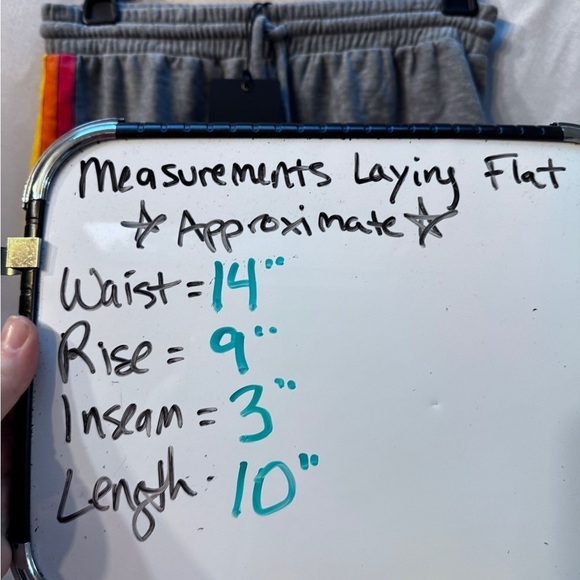 Measurements Laying Flat
☆ Approximate ☆
Waist = 14"
Rise = 9"
Inseam = 3"
Length - 10"